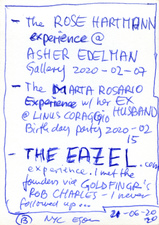 - The ROSE HARTMANN
experience @
ASHER EDELMAN
Gallery 2020-02-07
- The MARTA ROSARIO
Experience w/ her EX
HUSBAND
@ LINUS CORAGGIO
Birthday party 2020-02
15
- THE EAZEL.com
experience. I met the
founders via GOLDFINGR'S
ROB CHARLES - I never
followed up...
20-06-20
20
13 NYC